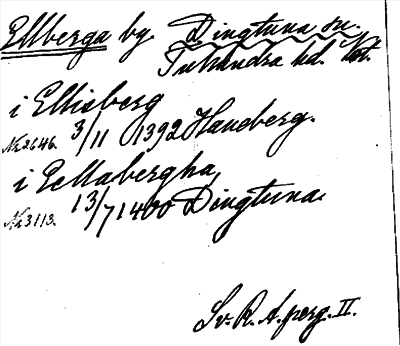 Ellberga by. Dingtuna sn.
Tuhundra hd. Vstm.
i Ellisberg
No 2646. 3/11 1392 Haneberg.
i Eellabergha
No 3113. 13/7 1400 Dingtuna.
Sv. R. A. perg. II.